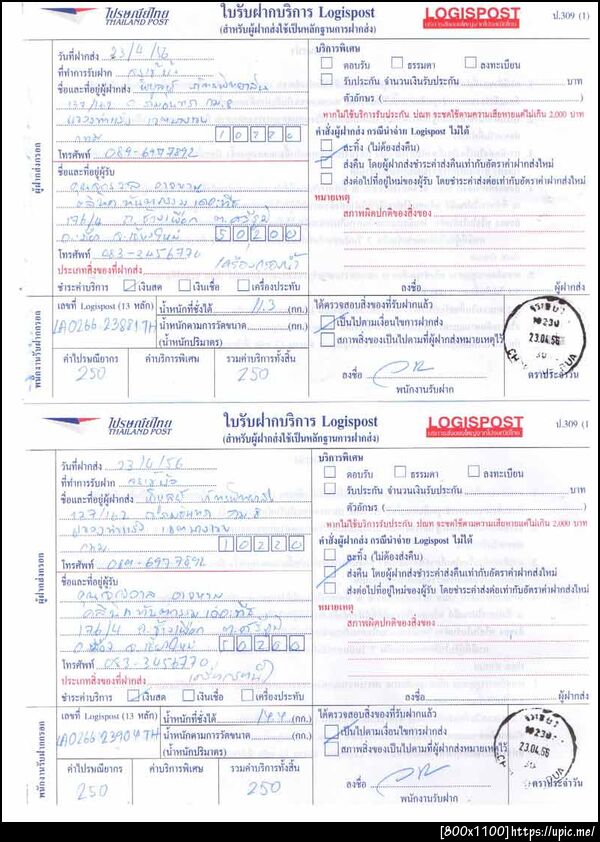 ไปรษณีย์ไทย
THAILAND POST
ใบรับฝากบริการ Logispost
(สำหรับผู้ฝากส่งใช้เป็นหลักฐานการฝากส่ง)
LOGISPOST
ป.309 (1)
วันที่ฝากส่ง 23/4/56
ที่ทำการรับฝาก
ชื่อและที่อยู่ผู้ฝากส่ง
137/162
10220
โทรศัพท์ 089-6977892
ชื่อและที่อยู่ผู้รับ
176/4 ถ.ช้างเผือก ต.ศรีภูมิ
จ.เชียงใหม่ 50200
โทรศัพท์ 083-3456770
ประเภทสิ่งของที่ฝากส่ง เครื่องกรองน้ำ
ชำระค่าบริการ เงินสด เงินเชื่อ เครื่องประทับ
ผู้ฝากส่งกรอก
บริการพิเศษ
ตอบรับ ธรรมดา ลงทะเบียน
รับประกัน จำนวนเงินรับประกัน บาท
ตัวอักษร ( )
หากไม่ใช้บริการรับประกัน ปณท จะชดใช้ตามความเสียหายแต่ไม่เกิน 2,000 บาท
คำสั่งผู้ฝากส่ง กรณีนำจ่าย Logispost ไม่ได้
ละทิ้ง (ไม่ต้องส่งคืน)
ส่งคืน โดยผู้ฝากส่งชำระค่าส่งคืนเท่ากับอัตราค่าฝากส่งใหม่
ส่งต่อไปที่อยู่ใหม่ของผู้รับ โดยชำระค่าส่งต่อเท่ากับอัตราค่าฝากส่งใหม่
หมายเหตุ
สภาพผิดปกติของสิ่งของ
ลงชื่อ ผู้ฝากส่ง
พนักงานรับฝากกรอก
เลขที่ Logispost (13 หลัก)
LA0266 23881 TH
น้ำหนักที่ชั่งได้ 11.3 (กก.)
น้ำหนักตามการวัดขนาด (กก.)
(น้ำหนักปริมาตร)
ค่าไปรษณียากร ค่าบริการพิเศษ รวมค่าบริการทั้งสิ้น
250 250
ได้ตรวจสอบสิ่งของที่รับฝากแล้ว
เป็นไปตามเงื่อนไขการฝากส่ง
สภาพสิ่งของเป็นไปตามที่ผู้ฝากส่งหมายเหตุไว้
ลงชื่อ
พนักงานรับฝาก
10230
23.04.56
ตราประจำวัน
ไปรษณีย์ไทย
THAILAND POST
ใบรับฝากบริการ Logispost
(สำหรับผู้ฝากส่งใช้เป็นหลักฐานการฝากส่ง)
LOGISPOST
ป.309 (1
วันที่ฝากส่ง 23/4/56
ที่ทำการรับฝาก
ชื่อและที่อยู่ผู้ฝากส่ง
137/162
10220
โทรศัพท์ 089-6977892
ชื่อและที่อยู่ผู้รับ
176/4 ถ.ช้างเผือก ต.ศรีภูมิ
โทรศัพท์ 083-3456770
ประเภทสิ่งของที่ฝากส่ง
ชำระค่าบริการ เงินสด เงินเชื่อ เครื่องประทับ
ผู้ฝากส่งกรอก
บริการพิเศษ
ตอบรับ ธรรมดา ลงทะเบียน
รับประกัน จำนวนเงินรับประกัน บาท
ตัวอักษร ( )
หากไม่ใช้บริการรับประกัน ปณท จะชดใช้ตามความเสียหายแต่ไม่เกิน 2,000 บาท
คำสั่งผู้ฝากส่ง กรณีนำจ่าย Logispost ไม่ได้
ละทิ้ง (ไม่ต้องส่งคืน)
ส่งคืน โดยผู้ฝากส่งชำระค่าส่งคืนเท่ากับอัตราค่าฝากส่งใหม่
ส่งต่อไปที่อยู่ใหม่ของผู้รับ โดยชำระค่าส่งต่อเท่ากับอัตราค่าฝากส่งใหม่
หมายเหตุ
สภาพผิดปกติของสิ่งของ
ลงชื่อ ผู้ฝากส่ง
พนักงานรับฝากกรอก
เลขที่ Logispost (13 หลัก)
LA0266 23904 TH
น้ำหนักที่ชั่งได้ (กก.)
น้ำหนักตามการวัดขนาด (กก.)
(น้ำหนักปริมาตร)
ค่าไปรษณียากร ค่าบริการพิเศษ รวมค่าบริการทั้งสิ้น
250 250
ได้ตรวจสอบสิ่งของที่รับฝากแล้ว
เป็นไปตามเงื่อนไขการฝากส่ง
สภาพสิ่งของเป็นไปตามที่ผู้ฝากส่งหมายเหตุไว้
ลงชื่อ
พนักงานรับฝาก
10230
23.04.56
ตราประจำวัน
[800x1100]https://upic.me/